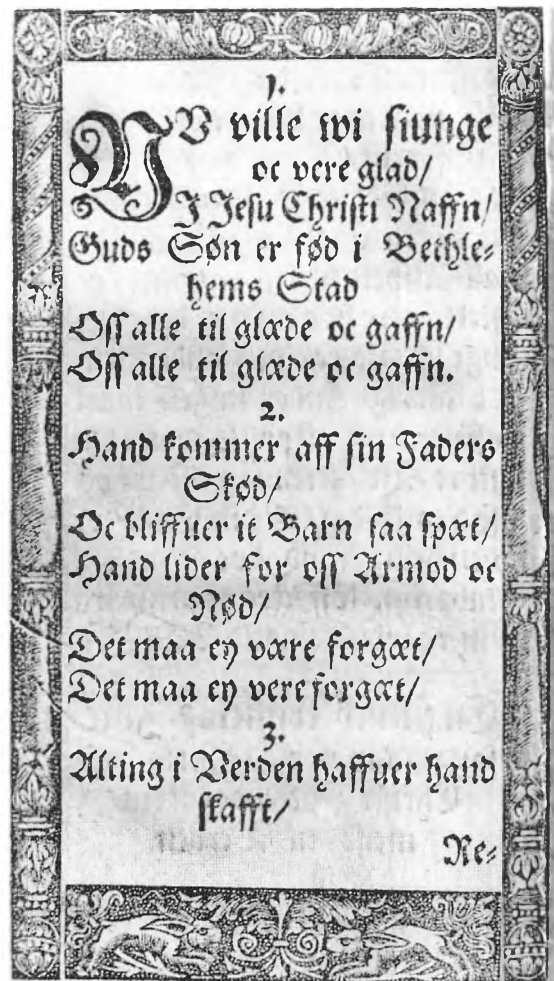 1.
NV ville wi siunge
oc vere glad/
J Jesu Christi Naffn/
Guds Søn er fød i Bethle-
hems Stad
Oss alle til glæde oc gaffn/
Oss alle til glæde oc gaffn.
2.
Hand kommer aff sin Faders
Skød/
Oc bliffuer it Barn saa spæt/
Hand lider for oss Armod oc
Nød/
Det maa ey være forgæt/
Det maa ey vere forgæt/
3.
Alting i Verden haffuer hand
skafft/
Re-